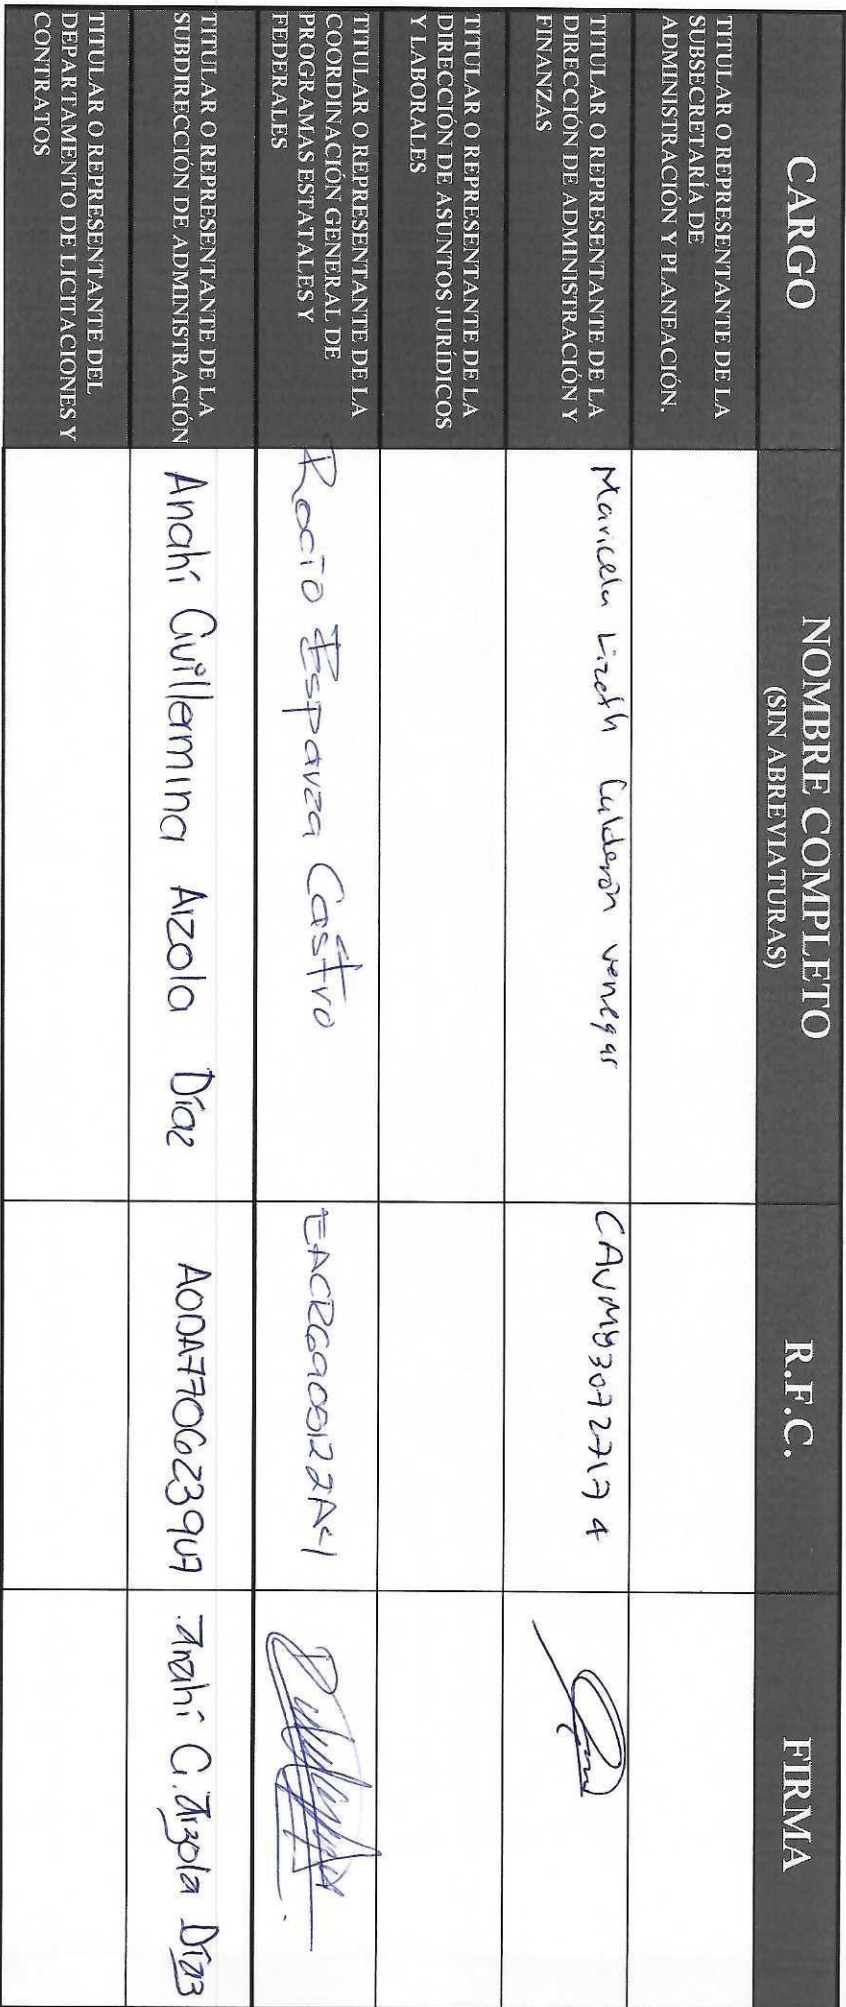 CARGO
NOMBRE COMPLETO
(SIN ABREVIATURAS)
R.F.C.
FIRMA
TITULAR O REPRESENTANTE DE LA
SUBSECRETARÍA DE
ADMINISTRACIÓN Y PLANEACIÓN.
TITULAR O REPRESENTANTE DE LA
DIRECCIÓN DE ADMINISTRACIÓN Y
FINANZAS
Maricela Lizeth Calderón Venegas
TITULAR O REPRESENTANTE DE LA
DIRECCIÓN DE ASUNTOS JURÍDICOS
Y LABORALES
TITULAR O REPRESENTANTE DE LA
COORDINACIÓN GENERAL DE
PROGRAMAS ESTATALES Y
FEDERALES
Rocío Esparza Castro
TITULAR O REPRESENTANTE DE LA
SUBDIRECCIÓN DE ADMINISTRACIÓN
Anahí Guillermina Arzola Díaz
AODA7706239U7
Anahí G. Arzola Díaz
TITULAR O REPRESENTANTE DEL
DEPARTAMENTO DE LICITACIONES Y
CONTRATOS